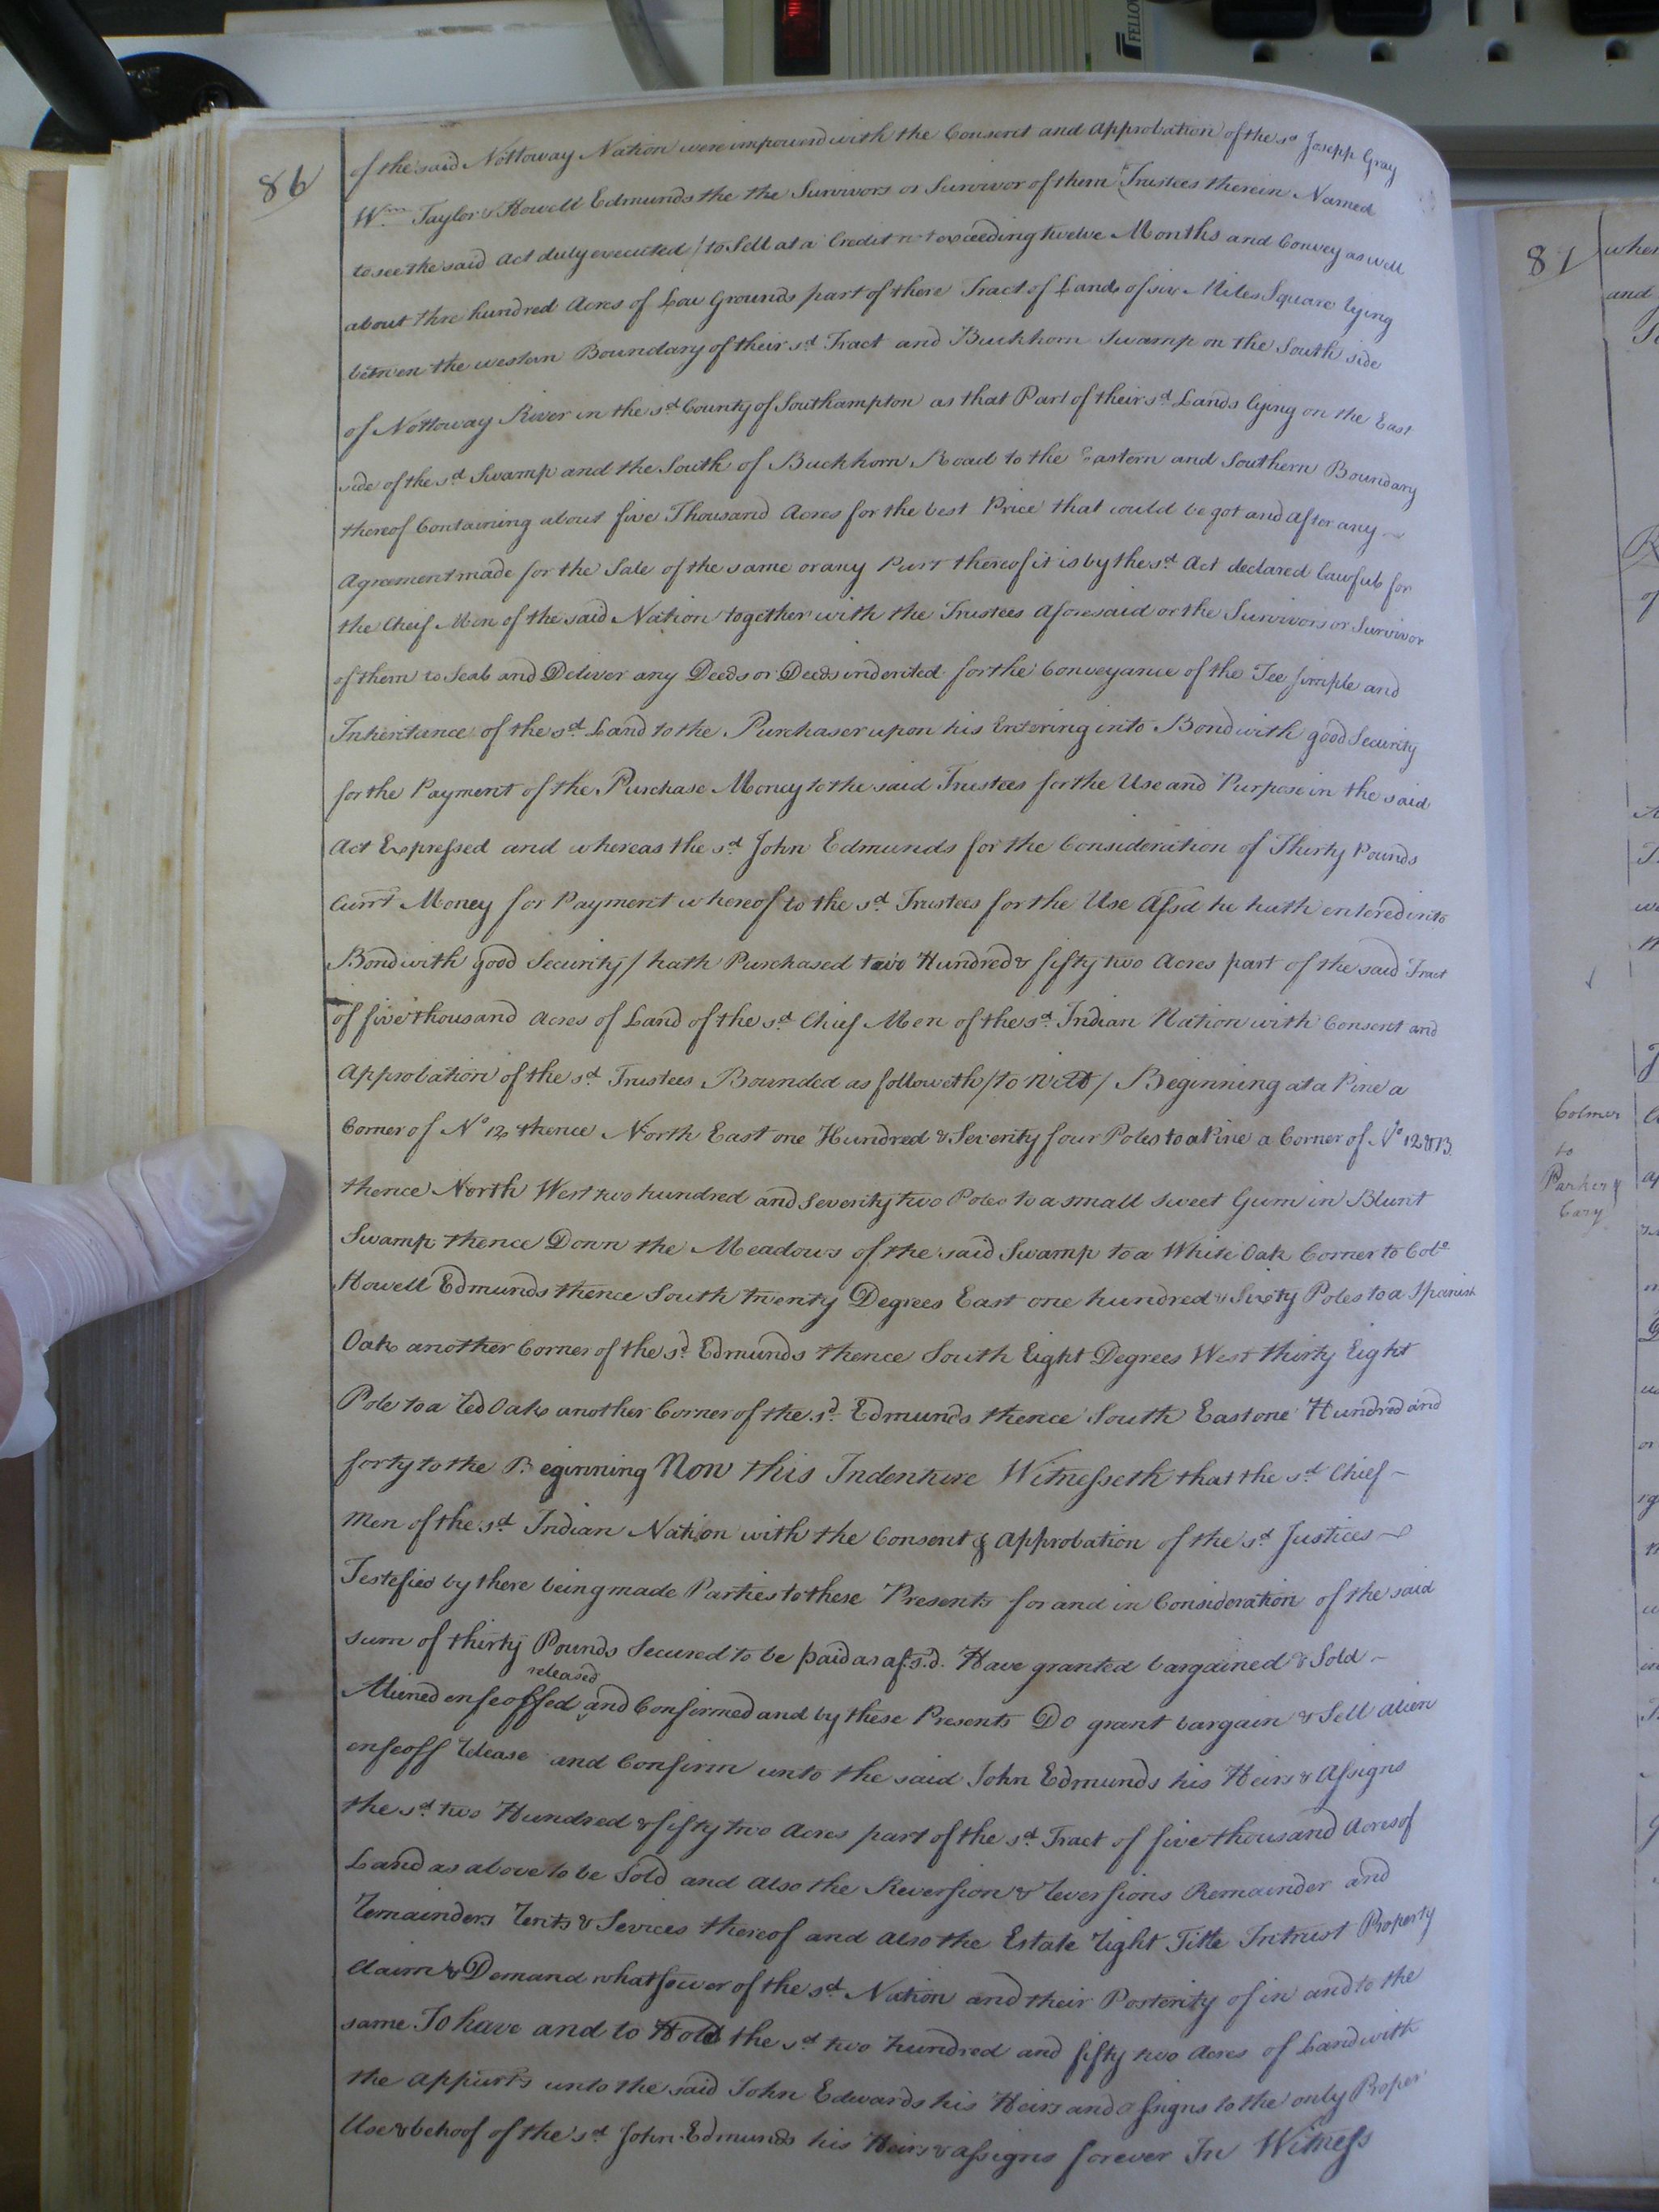 FELLO
86
of the said Nottoway Nation were impowerd with the Consent and Approbation of the sd Joseph Gray
Wm Taylor & Howell Edmunds the the Survivors or Survivor of them (Trustees therein Named
to see the said Act duly executed / to Sell at a Credit not exceeding twelve Months and Convey as well
about thre hundred Acres of Low Grounds part of there Tract of Lands of six Miles Square lying
between the western Boundary of their sd Tract and Buckhorn Swamp on the South side
of Nottoway River in the sd County of Southampton as that Part of their sd Lands lying on the East
side of the sd Swamp and the South of Buckhorn Road to the Eastern and Southern Boundary
thereof Containing about five Thousand Acres for the best Price that could be got and after any
Agreement made for the Sale of the same or any Part thereof it is by the sd Act declared lawful for
the Cheif Men of the said Nation together with the Trustees Aforesaid or the Survivors or Survivor
of them to Seal and Deliver any Deeds or Deeds indented for the Conveyance of the Fee simple and
Inheritance of the sd Land to the Purchaser upon his Entering into Bond with good Security
for the Payment of the Purchase Money to the said Trustees for the Use and Purpose in the said
Act Expressed and whereas the sd John Edmunds for the Consideration of Thirty Pounds
Currt Money for Payment whereof to the sd Trustees for the Use Afsd he hath entered into
Bond with good Security / hath Purchased two Hundred & fifty two Acres part of the said Tract
of five thousand Acres of Land of the sd Chief Men of the sd Indian Nation with Consent and
Approbation of the sd Trustees Bounded as followeth / to witt / Beginning at a Pine a
Corner of No 12 thence North East one Hundred & Seventy four Poles to a Pine a Corner of No 12 & 13
thence North West two hundred and Seventy two Poles to a small sweet Gum in Blunt
Swamp thence Down the Meadows of the said Swamp to a White Oak Corner to Colo
Howell Edmunds thence South twenty Degrees East one hundred & Sixty Poles to a Spanish
Oak another Corner of the sd Edmunds thence South Eight Degrees West thirty Eight
Pole to a red Oak another Corner of the sd Edmunds thence South East one Hundred and
forty to the Beginning Now this Indenture Witnesseth that the sd Chief
Men of the sd Indian Nation with the Consent & Approbation of the sd Justices
Testefied by there being made Parties to these Presents for and in Consideration of the said
sum of thirty Pounds Secured to be paid as af.s.d. Have granted bargained & Sold
released
Aliened enfeoffed and Confirmed and by these Presents Do grant bargain & Sell alien
enfeoff release and Confirm unto the said John Edmunds his Heirs & Assigns
the sd two Hundred & fifty two Acres part of the sd Tract of five thousand Acres of
Land as above to be Sold and also the Reversion & reversions Remainder and
remainders rents & Sevices thereof and also the Estate right Title Intrust Property
Claim & Demand whatsoever of the sd Nation and their Posterity of in and to the
same To have and to Hold the sd two hundred and fifty two Acres of Land with
the appurts unto the said John Edwards his Heirs and assigns to the only Proper
Use & behoof of the sd John Edmunds his Heirs & assigns forever In Witness
87
and
Colmer
to
Parker &
Cary